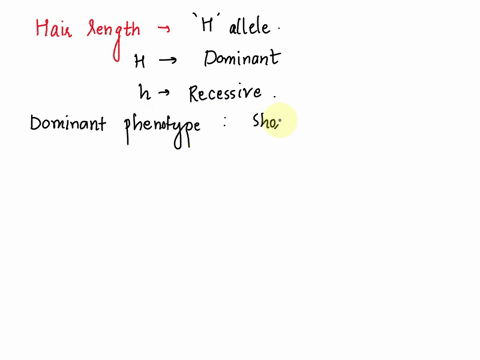 Hair length → 'H' allele.
H → Dominant
h → Recessive.
Dominant phenotype : Sho